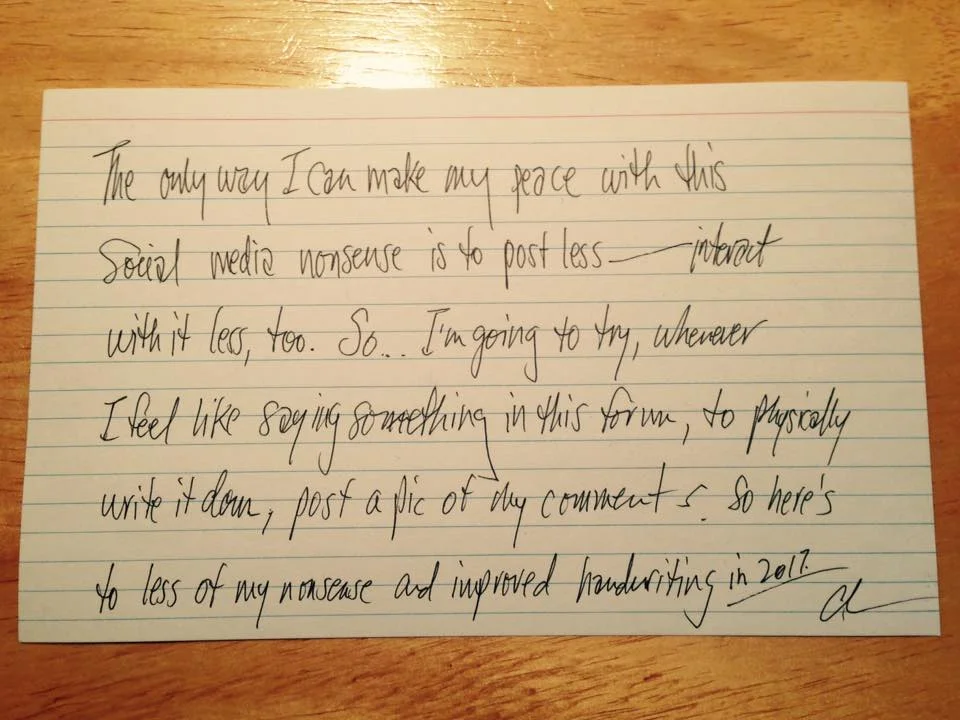 The only way I can make my peace with this
Social media nonsense is to post less — interact
with it less, too. So... I'm going to try, whenever
I feel like saying something in this forum, to physically
write it down, post a pic of my comments. So here's
to less of my nonsense and improved handwriting in 2017.